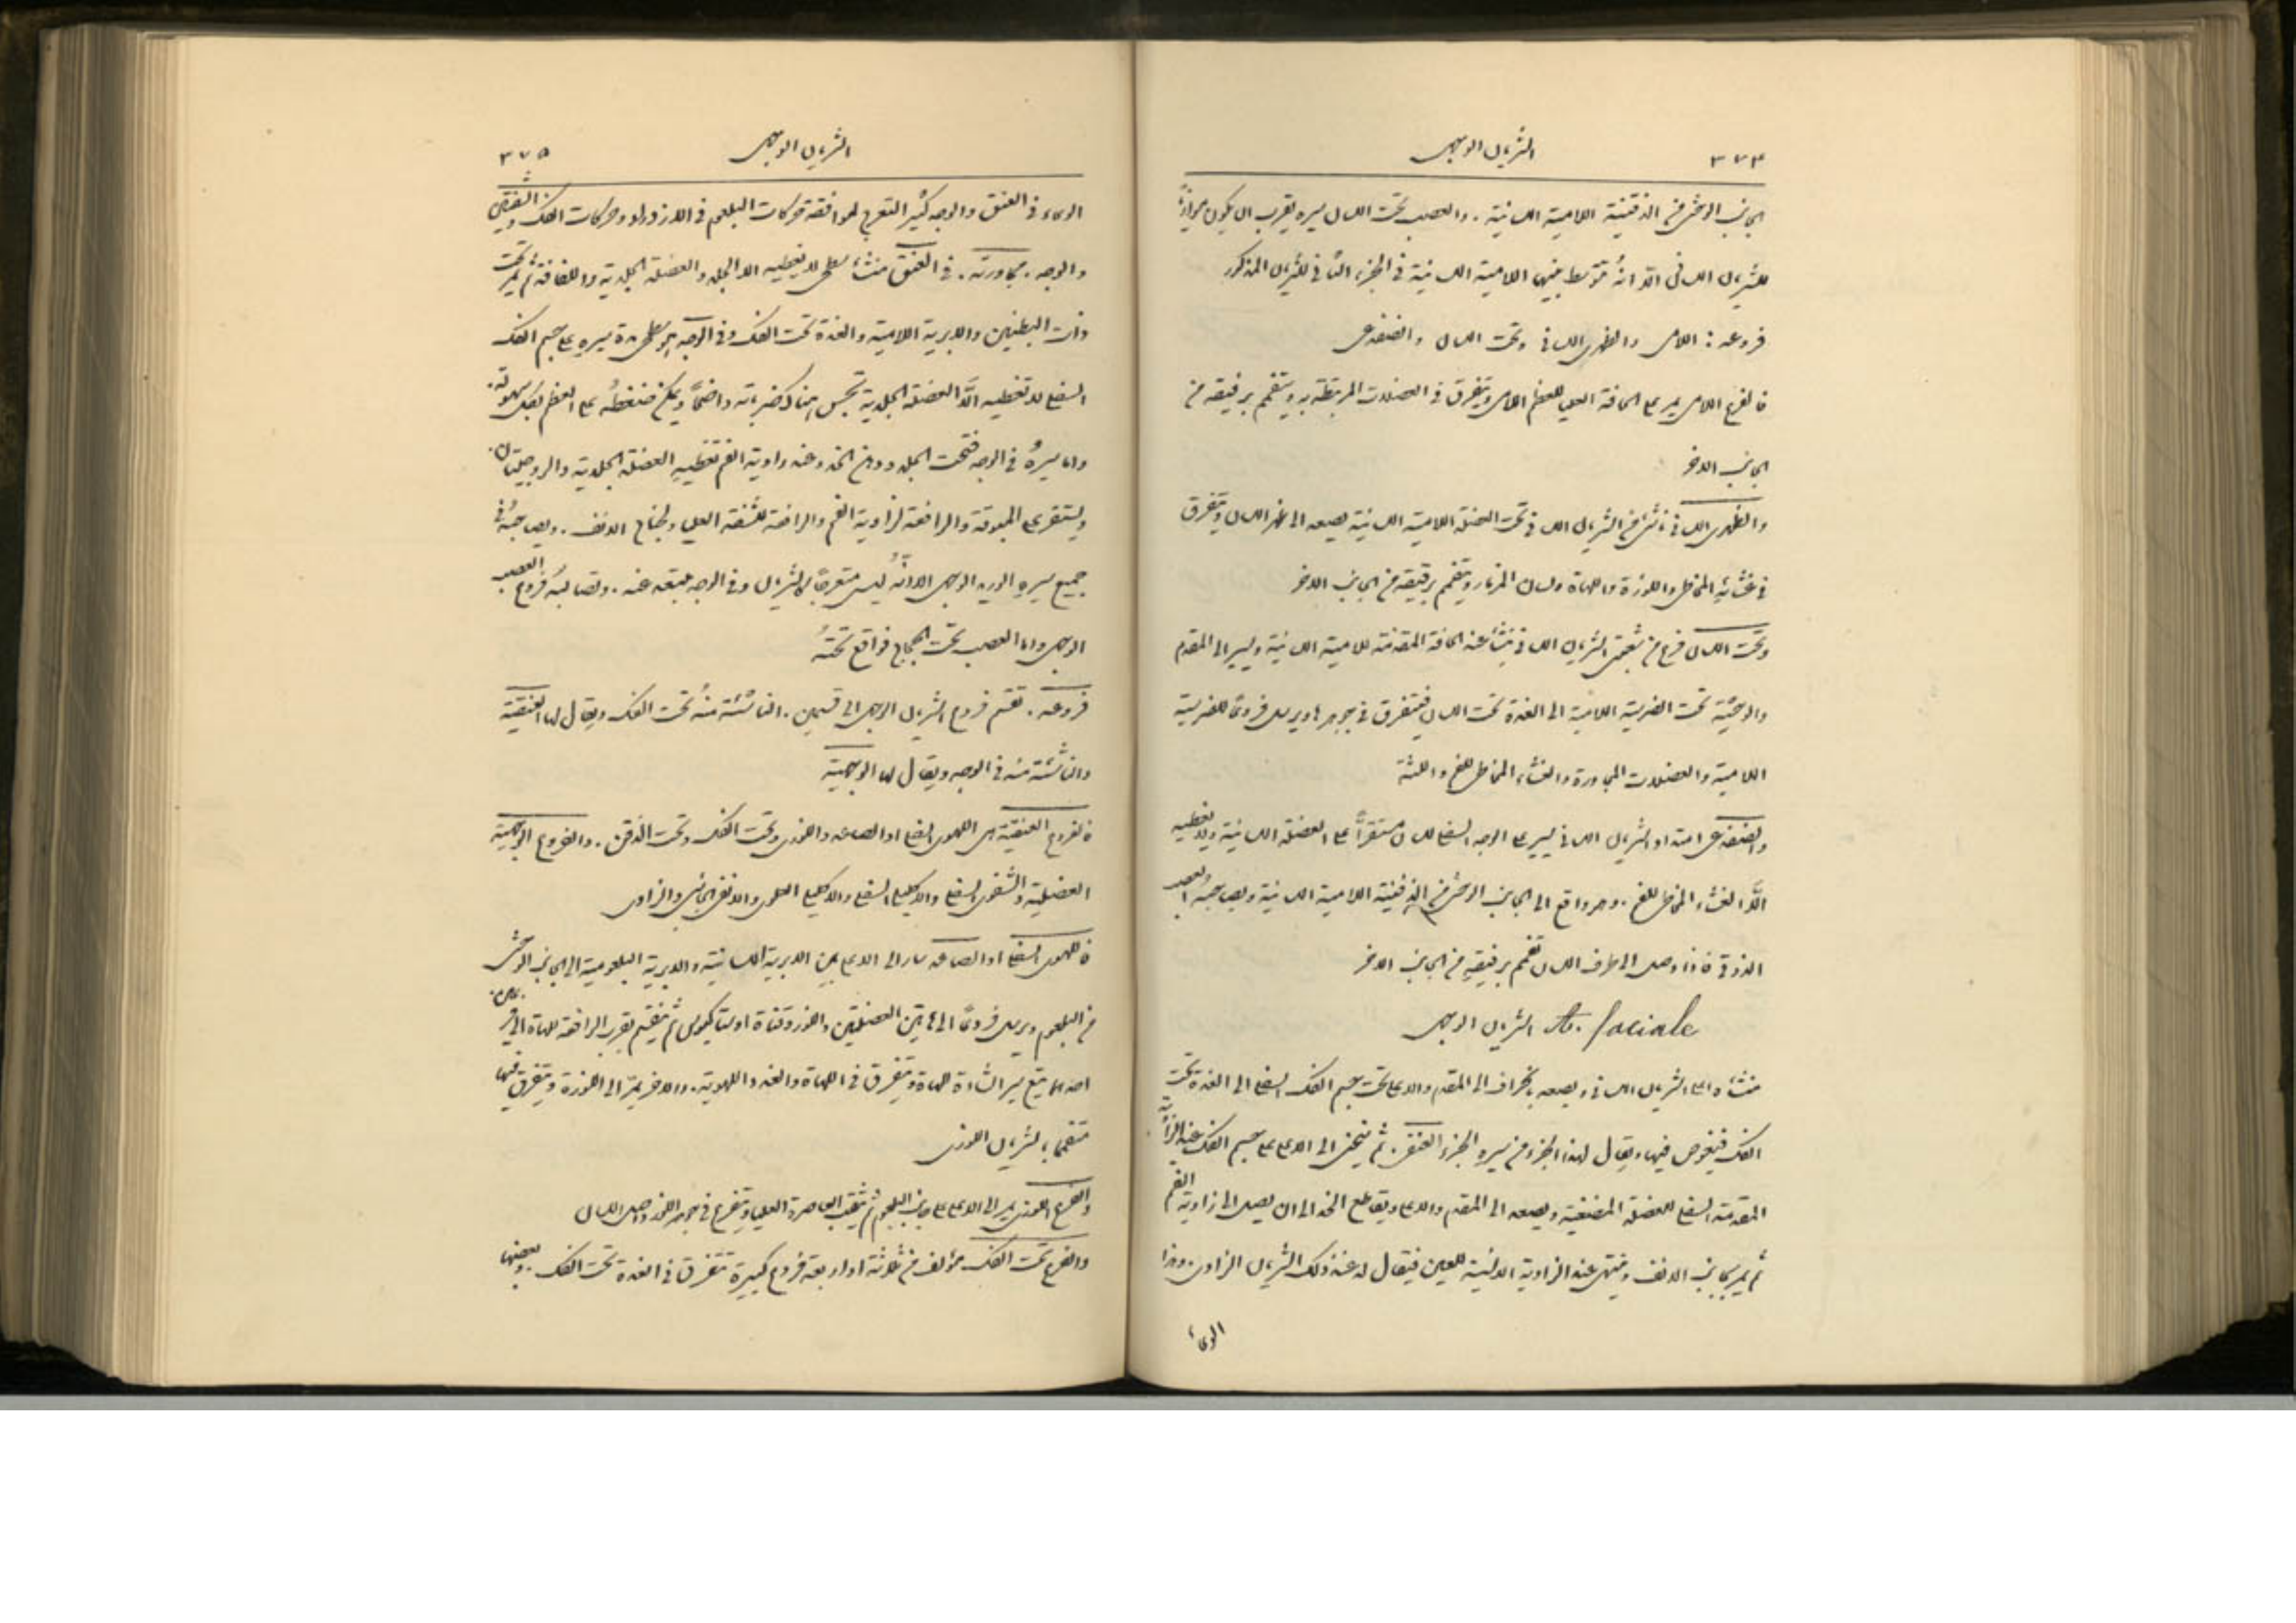 ٣٧٤
الشريان الوجهي
الجانب الوحشي من الذقنية اللامية اللسانية . والعصب تحت اللسان سيره يقرب ان يكون موازياً
للشريان اللساني الّا انهُ تتوسط بينهما اللامية اللسانية في الجزء الثاني للشريان المذكور
فروعه : اللامي والظهري اللساني وتحت اللسان والضفدعي
فالفرع اللامي يمر على الحافة العليا للعظم اللامي ويتفرق في العضلات المرتبطة به ويتفمم برفيقه من
الجانب الاخر
والظهري اللساني ناشئ من الشريان اللساني تحت العضلة اللامية اللسانية يصعد الى ظهر اللسان ويتفرق
في غشائهِ المخاطي واللوزة واللهاة ولسان المزمار ويتفمم برفيقه من الجانب الاخر
وتحت اللسان فرع من شعبتي الشريان اللساني ينشأ عند الحافة المقدمة للامية اللسانية ويسير الى المقدم
والوحشية تحت الضرسية اللامية الى الغدة تحت اللسان فيتفرق في جوهرها ويرسل فروعاً للضرسية
اللامية والعضلات المجاورة والغشاء المخاطي للفم واللثة
والضفدعي امتداد الشريان اللساني يسير على الوجه السفلي للسان مستقراً على العضلة اللسانية ولا يغطيه
الّا الغشاء المخاطي للفم . وهو واقع الى الجانب الوحشي من الذقنية اللامية اللسانية ويصاحبهُ العصب
الذوقي فاذا وصل الى طرف اللسان تفمم برفيقهِ من الجانب الاخر
الشريان الوجهي A. faciale
منشاه اعلى الشريان اللساني ويصعد بانحراف الى المقدم والاعلى تحت جسم الفك السفلي الى الغدة تحت
الفك فيغوص فيها ويقال لهذا الجزء من سيره الجزء العنقي . ثم ينحني الى الاعلى على جسم الفك عند الزاوية
المقدمة السفلى للعضلة المضغية ويصعد الى المقدم والاعلى ويقاطع الخد الى ان يصل الى زاوية الفم
ثم يمر بجانب الانف وينتهي عند الزاوية الانسية للعين فيقال له عند ذلك الشريان الزاوي . وهذا
الوعاء
٣٧٥
الشريان الوجهي
الوعاء في العنق والوجه كثير التعرج لموافقة حركات البلعوم في الازدراد وحركات الفك والشفتين
والوجه . مجاورته . في العنق منشاه سطحي لا يغطيه الا الجلد والعضلة الجلدية واللفافة ثم يمر تحت
ذات البطنين والابرية اللامية والغدة تحت الفك وفي الوجه هو سطحي مدة سيره على جسم الفك
السفلي لا تغطيه الّا العضلة الجلدية تجس هناك ضرباته واضحاً ويمكن ضغطهُ على العظم بكل سهولة .
واما سيرهُ في الوجه فتحت الجلد ودهن الخد وعند زاوية الفم تغطيهِ العضلة الجلدية والزوجيتان .
ويستقر على المبوقة والرافعة لزاوية الفم والرافعة للشفة العليا ولجناح الانف . ويصاحبهُ في
جميع سيرهِ الوريد الوجهي الا انَّهُ ليس متعرجاً كالشريان وفي الوجه يبتعد عنه . وتصالبهُ فروع العصب
الوجهي واما العصب تحت الحجاج فواقع تحتهُ
فروعه . تقسم فروع الشريان الوجهي الى قسمين . الناشئة منهُ تحت الفك ويقال لها العنقية
والناشئة منه في الوجه ويقال لها الوجهية
فالفروع العنقية هي اللهوي السفلي او الصاعد واللوزي وتحت الفك وتحت الذقن . والفروع الوجهية
العضلية والشفوي السفلي والاكليلي السفلي والاكليلي العلوي والانفي الجانبي والزاوي
فاللهوي السفلي او الصاعد سار الى الاعلى بين الابرية اللسانية والابرية البلعومية الى الجانب الوحشي
من البلعوم ويرسل فروعاً الى هاتين العضلتين واللوز وقناة اوستاكيوس ثم ينقسم بقرب الرافعة للهاة الى فرعين .
احدهما يتبع سير الشادة للهاة ويتفرق في اللهاة والغدد اللهوية . والاخر يمرّ الى اللوزة ويتفرق فيها
متفمماً بالشريان اللوزي
والفرع اللوزي يمر الى الاعلى على جانب البلعوم ثم يثقب العاصرة العليا ويتفرع في جوهر اللوز واصل اللسان
والفرع تحت الفك مؤلف من ثلاثة او اربعة فروع كبيرة تتفرق في الغدة تحت الفك . وبعضها